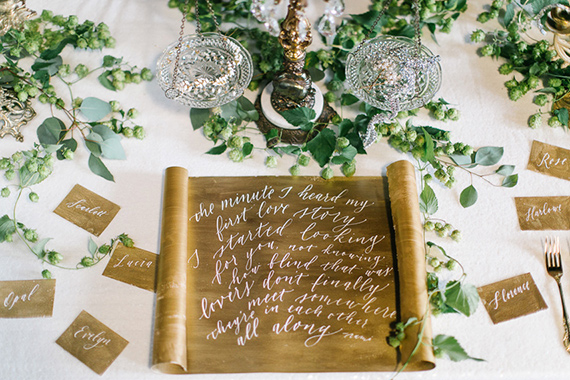 the minute I heard my
first love story
I started looking
for you, not knowing
how blind that was
lovers don't finally
meet somewhere
they're in each other
all along
Scarlett
Laura
Opal
Evelyn
Rose
Harlow
Florence